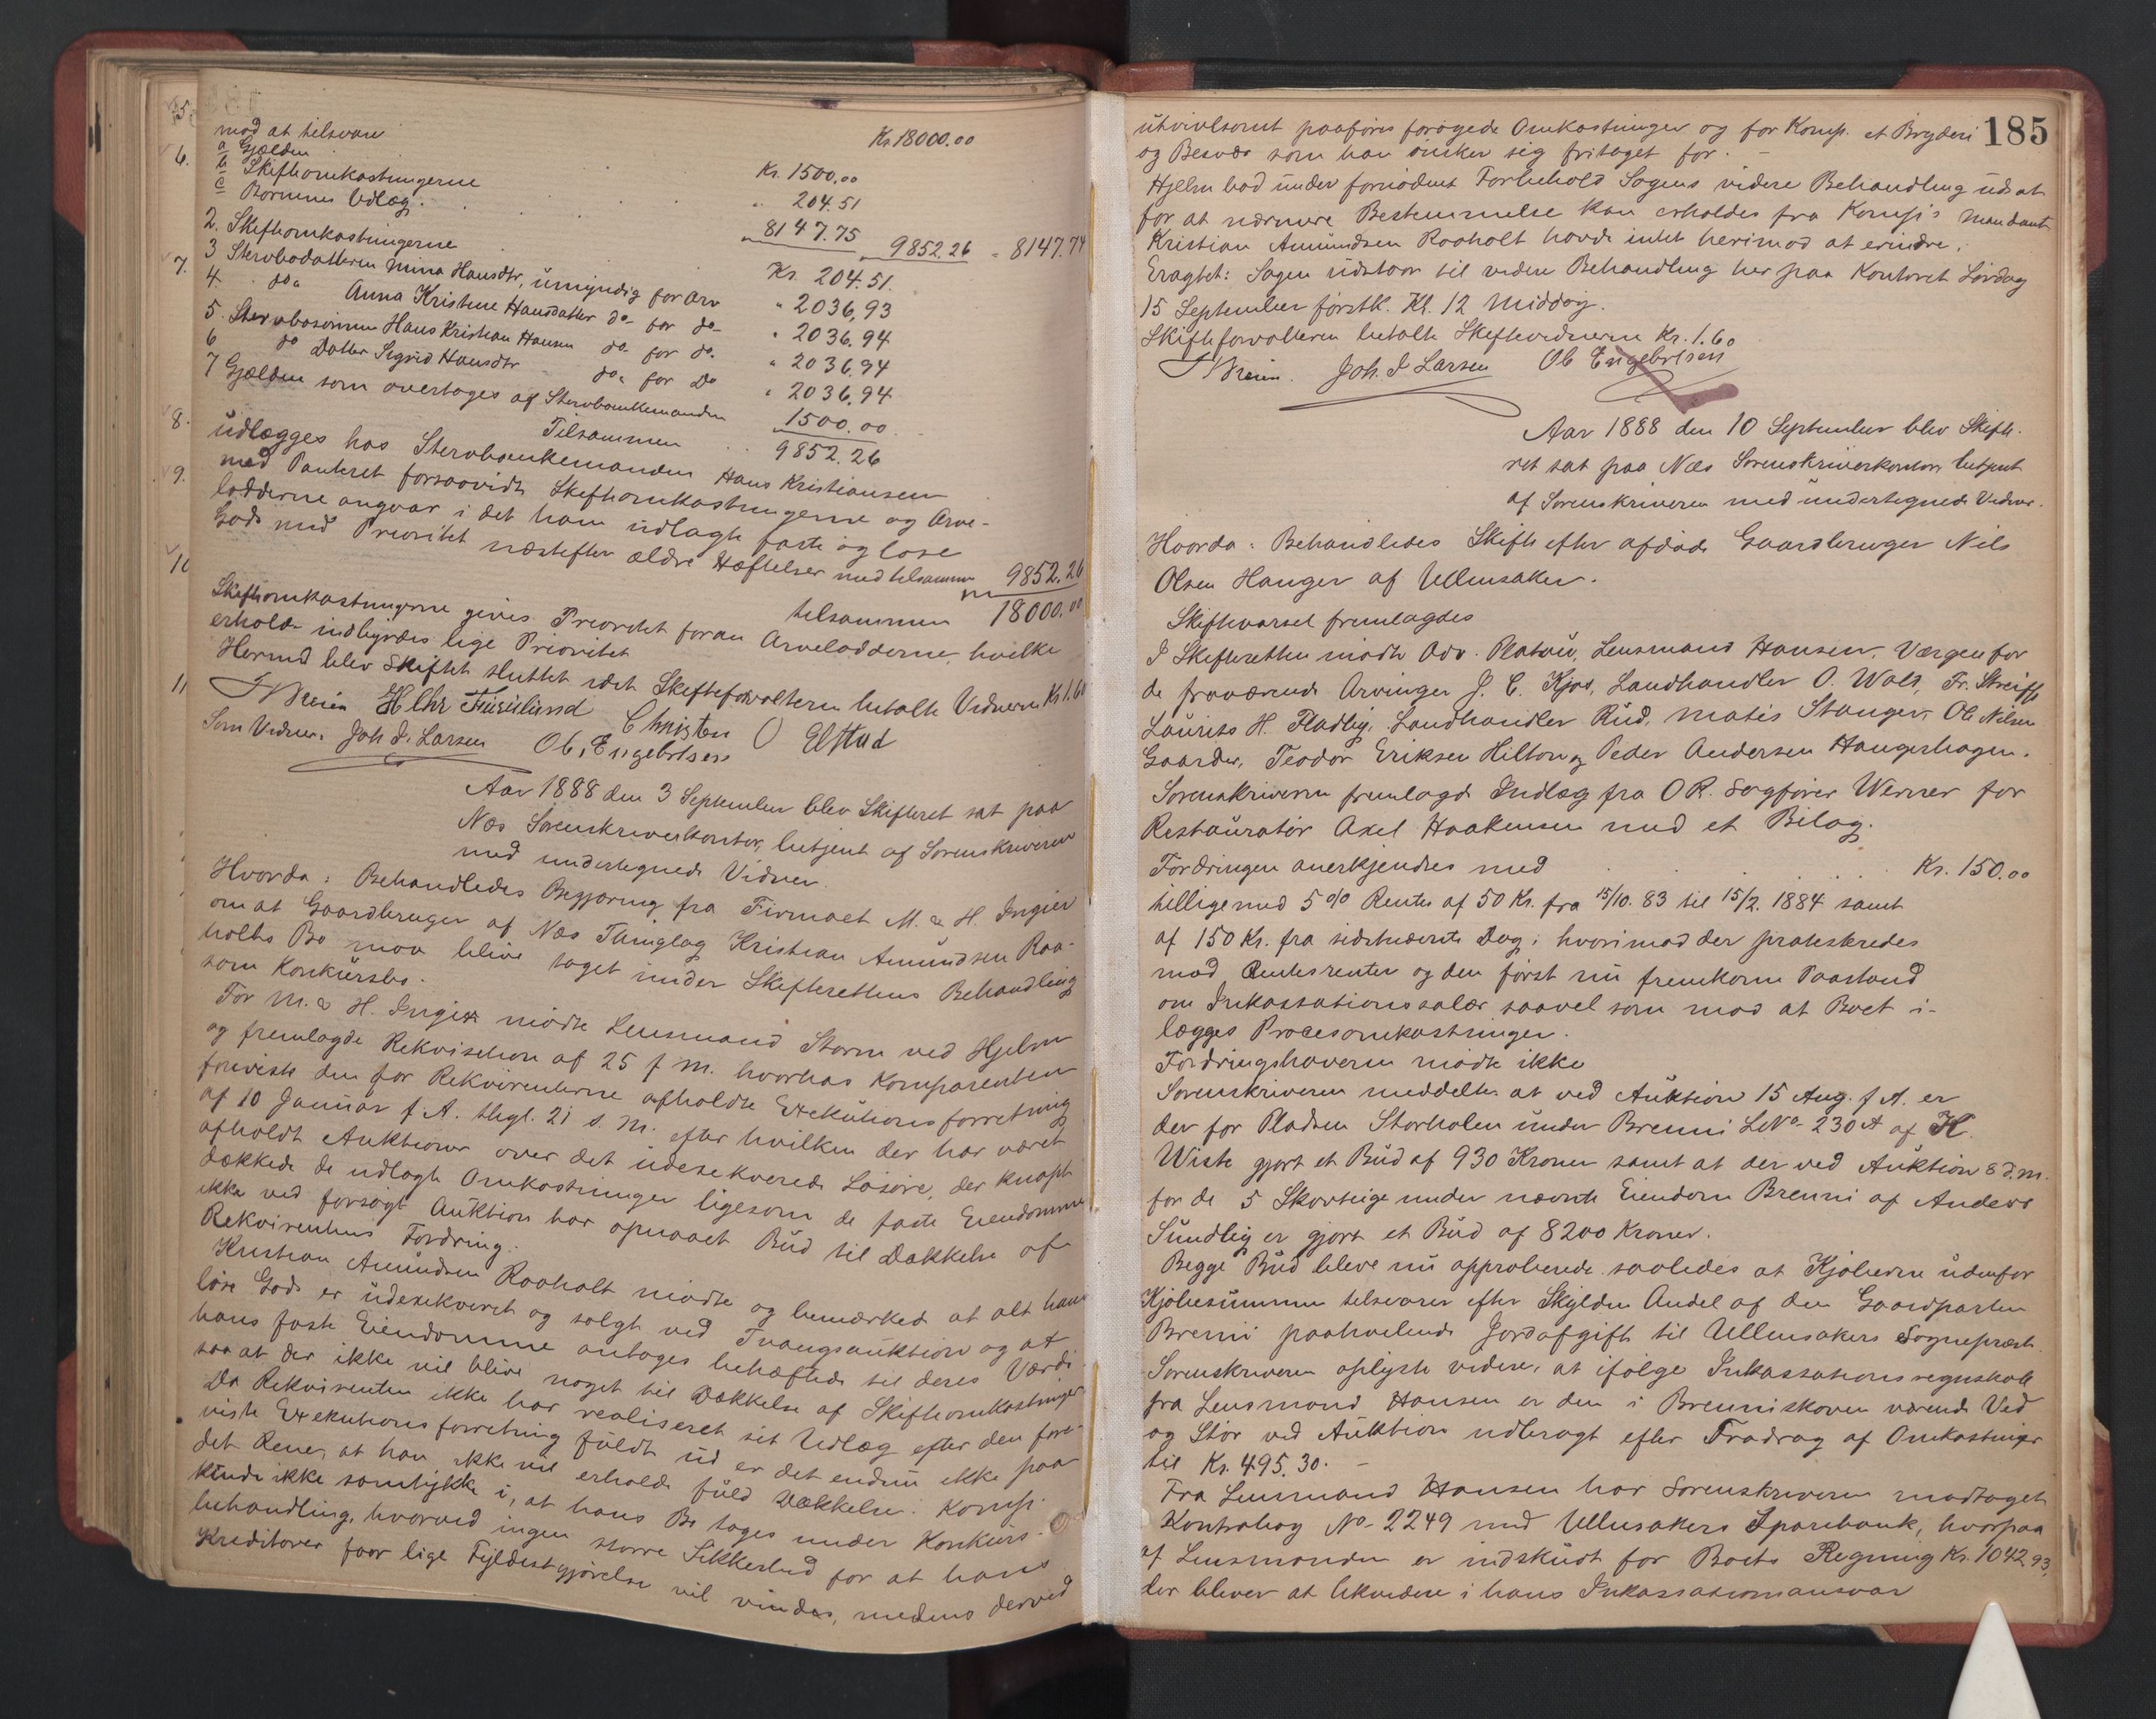 5.
mod at tilsvare Kr. 18000.00
6.
a Gjælden Kr. 1500.00
b Skifteomkostningerne " 204.51
c Børnenes Udlæg " 8147.75 " 9852.26 = 8147.74
2. Skifteomkostningerne Kr. 204.51.
7.
3 Stervbodatteren Mina Hansdtr, umyndig for Arv " 2036,93
4. do. Anna Kristine Hansdatter do. for do. " 2036.94
5. Stervbosønnen Hans Kristian Hansen do. for do. " 2036.94
6 do Datter Sigrid Hansdtr do. for Do " 2036.94
7 Gjælden som overtages af Stervboenkemanden 1500.00
8. Tilsammen 9852.26
udlægges hos Stervboenkemanden Hans Kristiansen
9. med Panteret forsaavidt Skifteomkostningerne og Arve-
lodderne angaar i det ham udlagte faste og løse
Gods med Prioritet næstefter ældre Hæftelser med tilsammen 9852.26
10 tilsammen 18000.00
Skifteomkostningerne gives Prioritet foran Arvelodderne, hvilke
erholde indbyrdes lige Prioritet
Hermed blev Skiftet sluttet idet Skifteforvalteren betalte Vidnerne Kr 1.60
11 Chr. Furulund Christen O Elstad
Som Vidner: Joh. I. Larsen Ole Engebretsen
Aar 1888 den 3 September blev Skifteret sat paa
Næs Sorenskriverkontor, betjent af Sorenskriveren
med undertegnede Vidner.
Hvorda: Behandledes Begjæring fra Firmaet M. & H. Ingier
om at Gaardbruger af Næs Thinglag Kristian Amundsen Raa-
holts Bo maa blive taget under Skifterettens Behandling
som Konkursbo.
For M. & H. Ingier mødte Lensmand Storm ved Hjelm
og fremlagde Rekvisition af 25 f M. hvorhos Komparenten
foreviste den for Rekvirenterne afholdte Exekutionsforretning
af 10 Januar f. A. thgl. 21 s. M. efter hvilken der har været
afholdt Auktioner over det udexekverede Løsøre, der knapt
dækkede de udlagte Omkostninger ligesom de faste Eiendomme
ikke ved forsøgt Auktion har opnaaet Bud til Dækkelse af
Rekvirentens Fordring.
Kristian Amundsen Raaholt mødte og bemærked at alt hans
løse Gods er udexekveret og solgt ved Tvangsauktion og at
hans faste Eiendomme antages behæftede til deres Værdi
saa at der ikke vil blive noget til Dækkelse af Skifteomkostninger
Da Rekvirenten ikke har realiseret sit Udlæg efter den fore-
viste Exekutionsforretning fuldt ud er det endnu ikke paa
det Rene, at han ikke vil erholde fuld Dækkelse. Komp.
kunde ikke samtykke i, at hans Bo tages under Konkurs-
behandling, hvorved ingen større Sikkerhed for at hans
Kreditorer faar lige Fyldestgjørelse vil vindes, medens derved
185
utvivlsomt paaføres forøgede Omkostninger og for Komp. et Bryderi
og Besvær som han ønsker sig fritaget for. –
Hjelm bad under fornødent Forbehold Sagens videre Behandling udsat
for at nærmere Bestemmelse kan erholdes fra Komp's Mandant
Kristian Amundsen Raaholt havde intet herimod at erindre.
Eragtet: Sagen udstaar til videre Behandling her paa Kontoret Lørdag
15 September førstk. Kl. 12 Middag.
Skifteforvalteren betalte Skiftevidnerne Kr. 1.60
Joh. I Larsen Ole Engebretsen
Aar 1888 den 10 September blev Skifte-
ret sat paa Næs Sorenskriverkontor betjent
af Sorenskriveren med undertegnede Vidner.
Hvorda: Behandledes Skifte efter afdøde Gaardbruger Nils
Olsen Hauger af Ullensaker.
Skiftevarsel fremlagdes
I Skifteretten mødte Adv. Platou, Lensmand Hansen, Værgen for
de fraværende Arvinger J. C. Kjos, Landhandler O. Wold, Fr. Streiff
Laurits H. Fladby, Landhandler Rud, Matis Stanger, Ole Nilsen
Gaarder, Teodor Eriksen Hilton og Peder Andersen Haugerhagen.
Sorenskriveren fremlagde Indlæg fra O R. Sagfører Werner for
Restauratør Axel Haakensen med et Bilag.
Fordringen anerkjendtes med Kr. 150.00
tilligemed 5 % Renter af 50 Kr. fra 15/10. 83 til 15/2. 1884 samt
af 150 Kr. fra sidstnævnte Dag; hvorimod der protesteredes
mod Rentesrenter og den først nu fremkomne Paastand
om Inkassationssalær saavel som mod at Boet i-
lægges Procesomkostninger.
Fordringshaveren mødte ikke
Sorenskriveren meddelte at ved Auktion 15 Aug. f A. er
der for Pladsen Storholen under Brenni LNo 230 A af K.
Wiste gjort et Bud af 930 Kroner samt at der ved Auktion 8 d. M.
for de 5 Skovteige under nævnte Eiendom Brenni af Anders
Sundby er gjort et Bud af 8200 Kroner.
Begge Bud bleve nu approberede saaledes at Kjøberne udenfor
Kjøbesummen tilsvarer efter Skylden Andel af den Gaardparten
Brenni paahvilende Jordafgift til Ullensakers Sogneprest.
Sorenskriveren oplyste videre, at ifølge Inkassationsregnskab
fra Lensmand Hansen er den i Brenniskoven værende Ved
og Stør ved Auktion udbragt efter Fradrag af Omkostninger
til Kr. 495.30. –
Fra Lensmand Hansen har Sorenskriveren modtaget
Kontrabog No. 2249 med Ullensakers Sparebank, hvorpaa
af Lensmanden er indskudt for Boets Regning Kr. 1042.93,
der bliver at likvidere i hans Inkassationsansvar